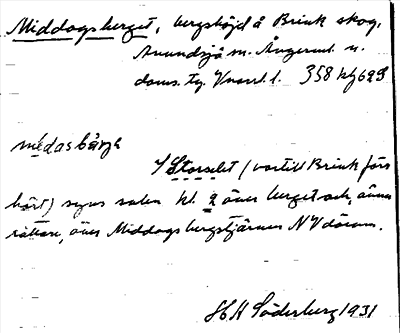 Middagsberget, bergshöjd å Brink skog,
Anundsjö sn. Ångerml. n.
doms. tg. 358
médasbärje
I Storselet (vartill Brink förr
hört) synes solen kl. 2 över berget och, ännu
rättare, över Middagsbergstjärnen NV därom.
H Söderberg 1931